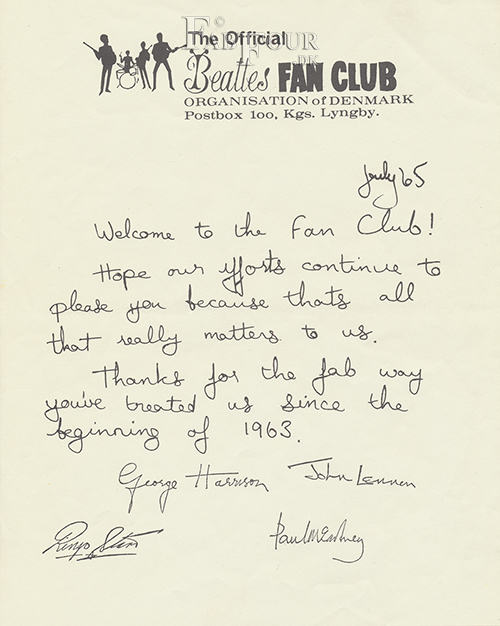 The Official
FAB FOUR
.DK
Beatles FAN CLUB
ORGANISATION of DENMARK
Postbox 100, Kgs. Lyngby.
July 65
Welcome to the Fan Club!
Hope our efforts continue to
please you because thats all
that really matters to us.
Thanks for the fab way
you've treated us since the
beginning of 1963.
George Harrison John Lennon
Ringo Starr Paul McCartney